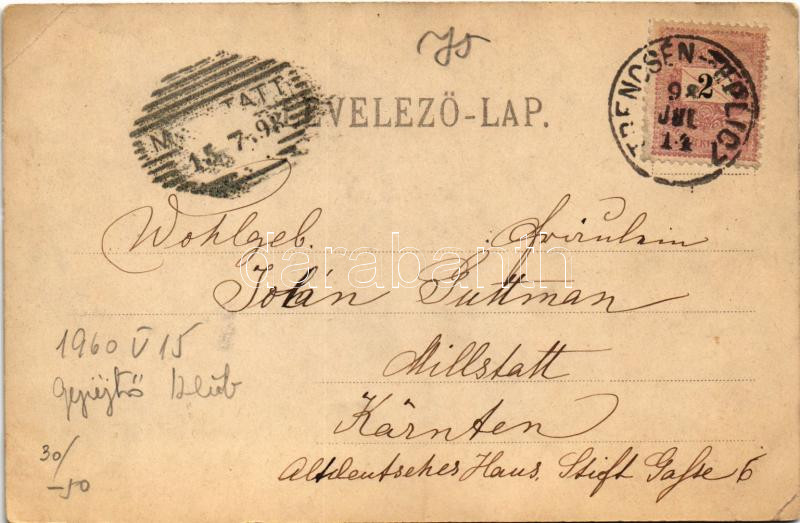 LEVELEZŐ-LAP.
TRENCSÉN-TEPLICZ
98
JUL
14
2
MILLSTATT
15.7.98
Wohlgeb. Fräulein
Jolán Guttman
Millstatt
Kärnten
Altdeutsches Haus. Stift Gasse 6
1960 V 15
Gyűjtő klub
30/
-50
darabanth